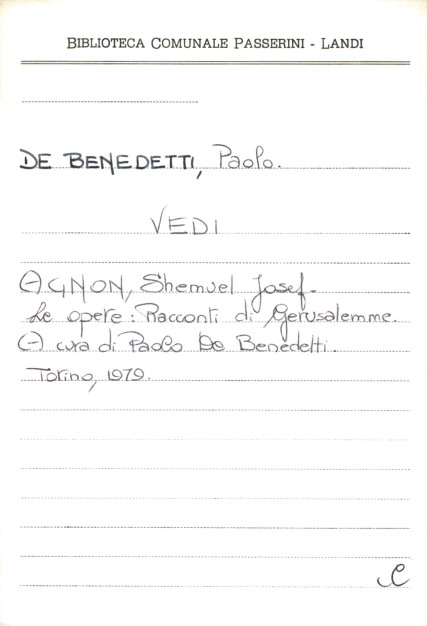 BIBLIOTECA COMUNALE PASSERINI - LANDI
DE BENEDETTI, Paolo.
VEDI
AGNON, Shemuel Josef.
Le opere: Racconti di Gerusalemme.
A cura di Paolo De Benedetti.
Torino, 1979.
C